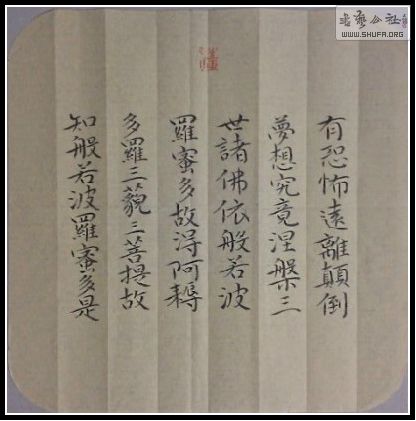 有恐怖遠離顛倒
夢想究竟涅槃三
世諸佛依般若波
羅蜜多故得阿耨
多羅三藐三菩提故
知般若波羅蜜多是
書藝公社
WWW.SHUFA.ORG